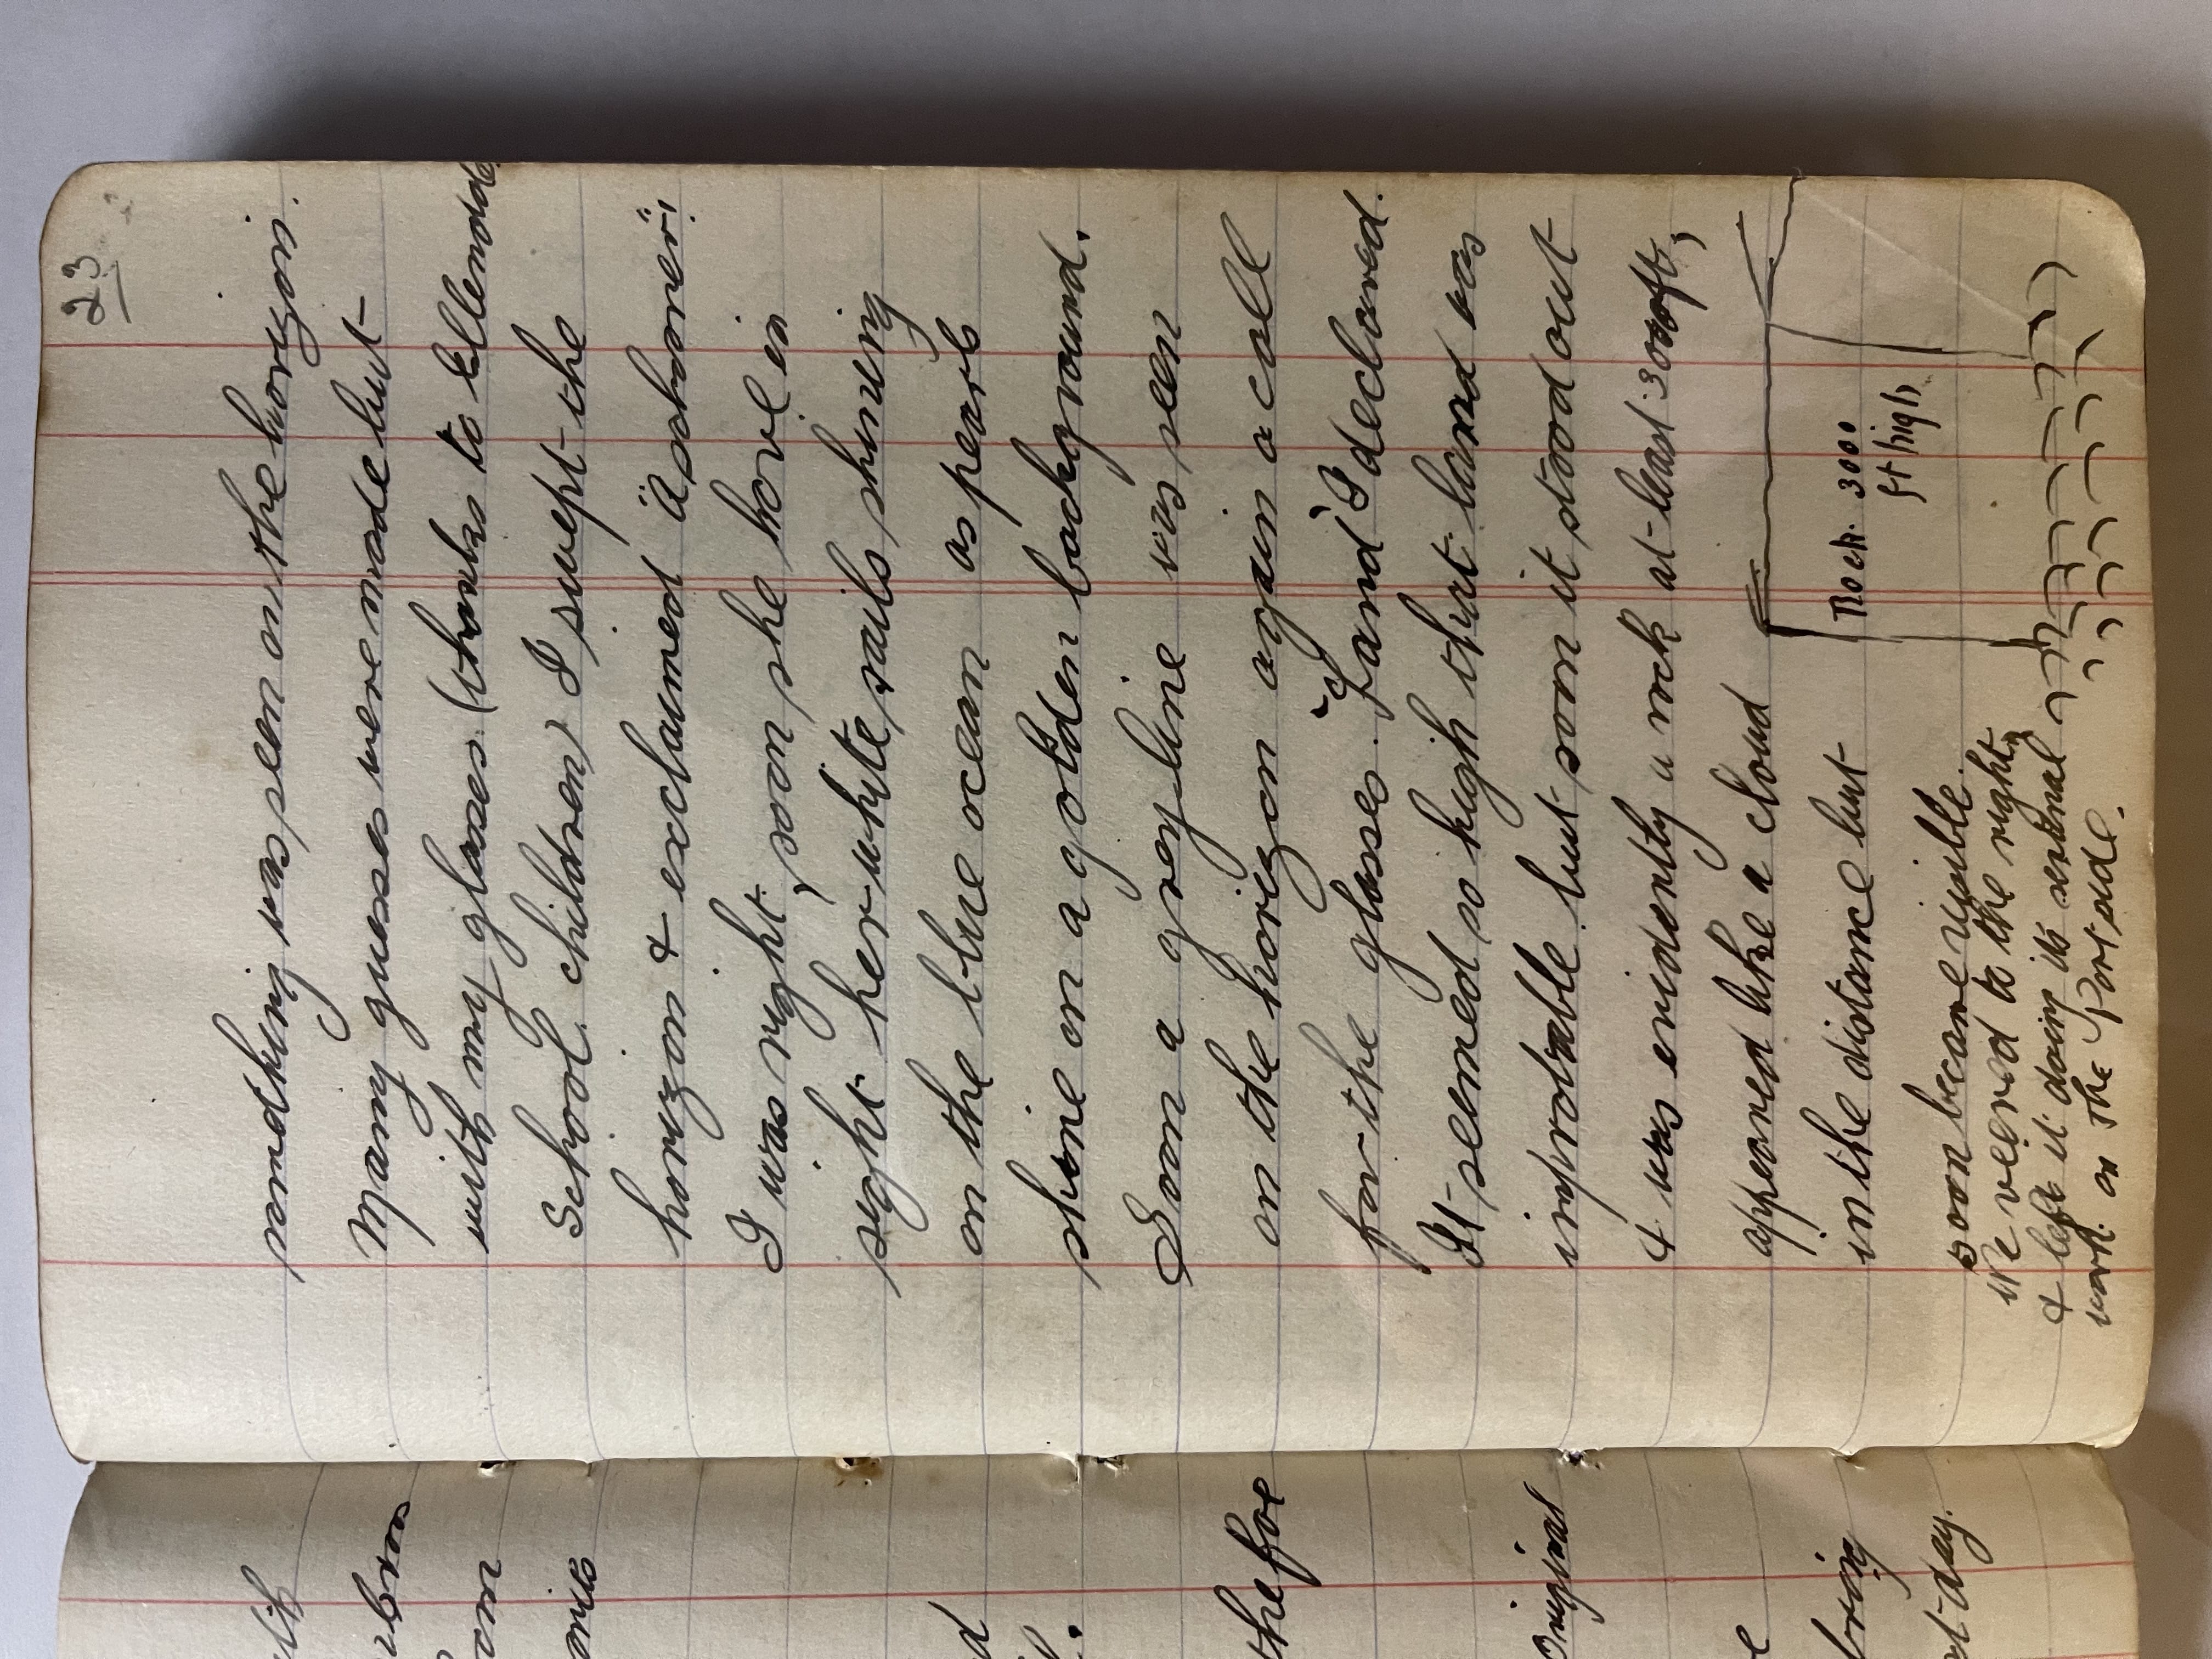 23
something was seen on the horizon.
Many guesses were made but
with my glasses (thanks to Ellemdale
School children) I swept the
horizon & exclaimed "a schooner".
I was right, soon she hove in
sight her white sails shining
on the blue ocean as pearls
shine on a golden background.
Soon a grey line was seen
on the horizon again a call
for the glasses. "Land" I declared.
It seemed so high that land was
improbable but soon it stood out
& was evidently a rock at least 3000ft,
appeared like a cloud
in the distance but
soon became visible.
We veered to the right
& left it doing its sentinal
work on the Port side.
Rock 3000
ft high
lth
om
the foe
Original
bring
t day.